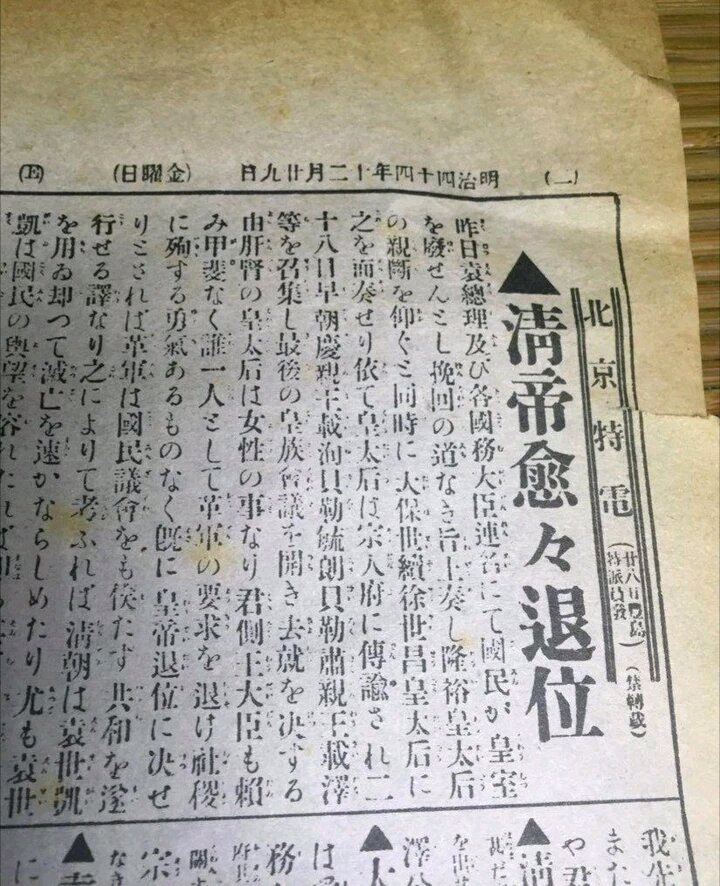 (二)
明治四十四年十二月廿九日
(金曜日)
北京特電
(廿八日豐島特派員發)
(禁轉載)
▲淸帝愈々退位
昨日袁總理及び各國務大臣連名にて國民が皇室
を廢せんとし挽回の道なき旨上奏し隆裕皇太后
の親斷を仰ぐと同時に大保世續徐世昌皇太后に
之を面奏せり依て皇太后は宗人府に傳諭され二
十八日早朝慶親王載洵貝勒毓朗貝勒肅親王載澤
等を召集し最後の皇族會議を開き去就を決する
由肝腎の皇太后は女性の事なり君側王大臣も賴
み甲斐なく誰一人として革軍の要求を退け社稷
に殉する勇氣あるものなく旣に皇帝退位に決せ
りとされば革軍は國民議會をも俟たず共和を遂
行せる譯なり之によりて考ふれば淸朝は袁世凱
を用ゐ却つて滅亡を速かならしめたり尤も袁世
凱は國民の輿望を容れたれば
また
や
▲淸
甚だ
を出
澤公
▲
は
務
宗
なき
▲
に